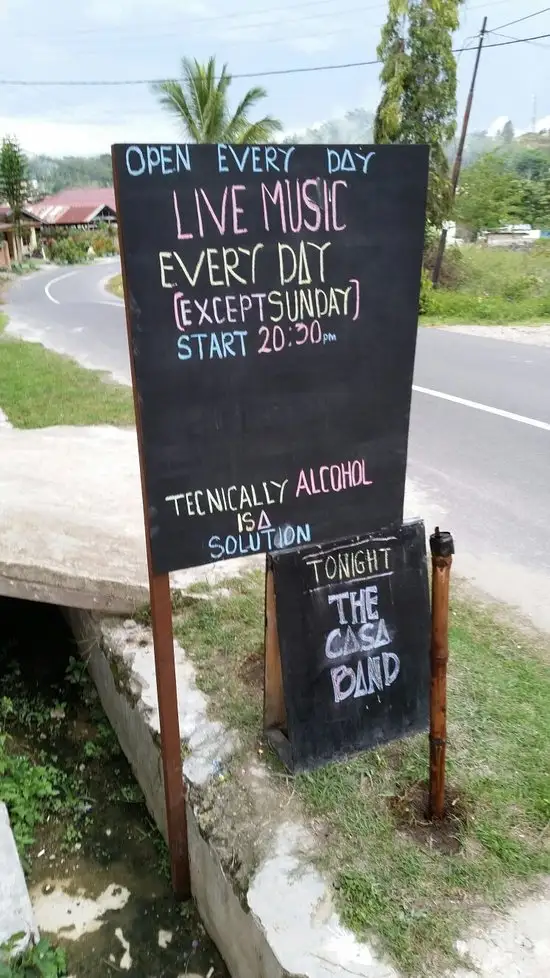 OPEN EVERY DAY
LIVE MUSIC
EVERY DAY
(EXCEPT SUNDAY)
START 20:30pm
TECNICALLY ALCOHOL
IS A
SOLUTION
TONIGHT
THE
CASA
BAND